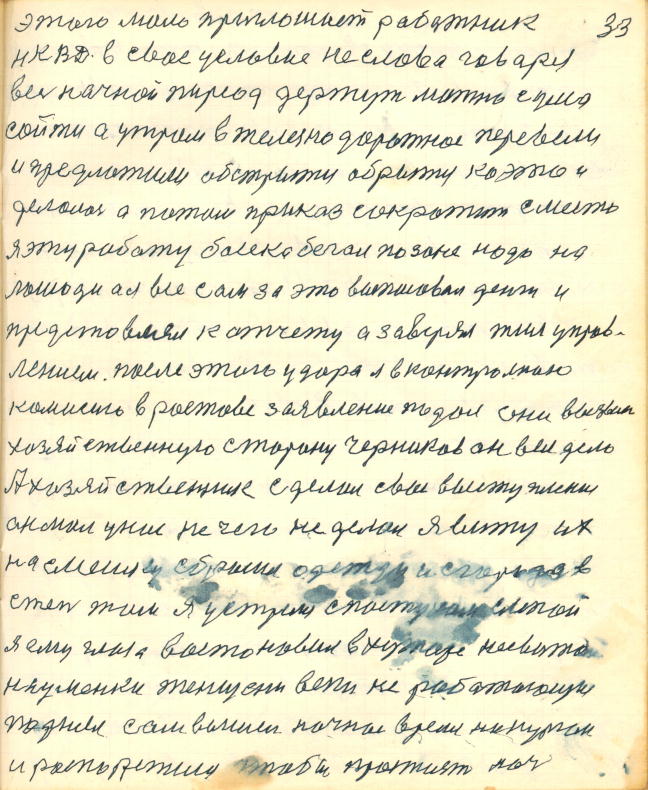 этого мало приглошает работник 33
НКВД. в свое условие не слова говоря
всю начной пириод держутможно сума
сойти а утром в железнодорожное перевели
и предложили обстрыти обрыти каэто и
делолос а потом приказ сократит с место
я эту работу более ка бегал по зоне надо на
лошоди а я все сам за это выписовал денги и
предстовлял к отчету а заверял жилуправ-
лением. После этого удара я в контролною
комисию в ростове заявление подал они вызвали
хозяйственную сторону Черников он вел дело
А хозяйственник сделал свое выступление
он мол у нас не чего не делал я вижу их
насмешку сбросил одежду и с города в
степ там я устрем слепой
я ему глаза востоновил в
науменки женщени не работающие
поднял сам вышел ночное время накурил
и роспорежение чтобы ноч